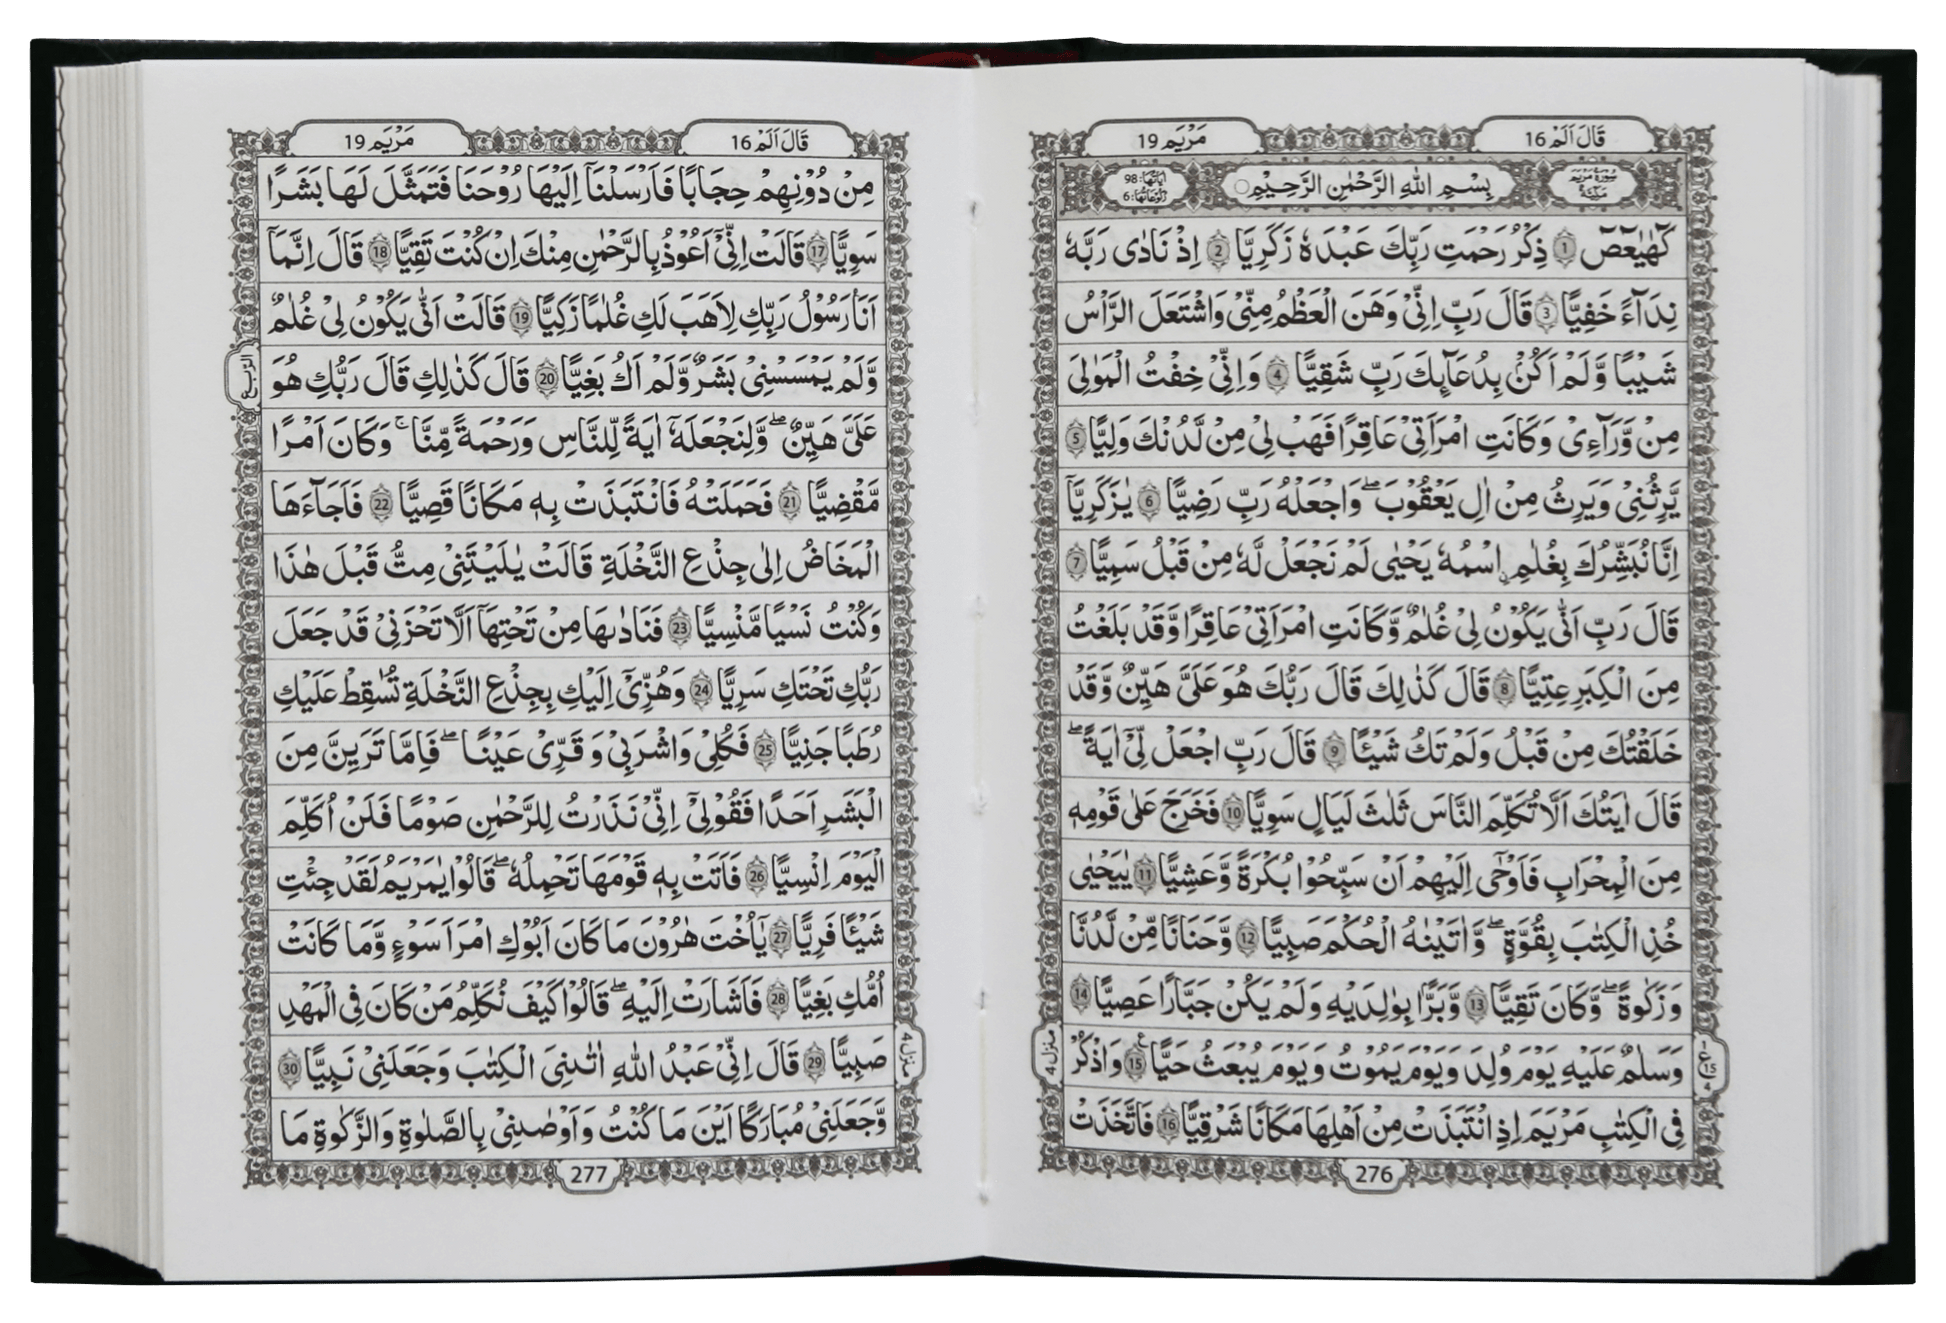 قَالَ اَلَمْ 16
مَرْيَم 19
سُوْرَةُ مَرْيَمَ مَكِّيَّةٌ
بِسْمِ اللّٰهِ الرَّحْمٰنِ الرَّحِيْمِ
اٰيَاتُهَا: 98
رُكُوْعَاتُهَا: 6
كٓهٰيٰعٓصٓ 1 ذِكْرُ رَحْمَتِ رَبِّكَ عَبْدَهٗ زَكَرِيَّا 2 اِذْ نَادٰى رَبَّهٗ
نِدَآءً خَفِيًّا 3 قَالَ رَبِّ اِنِّيْ وَهَنَ الْعَظْمُ مِنِّيْ وَاشْتَعَلَ الرَّاْسُ
شَيْبًا وَّلَمْ اَكُنْۢ بِدُعَآئِكَ رَبِّ شَقِيًّا 4 وَاِنِّيْ خِفْتُ الْمَوَالِيَ
مِنْ وَّرَآءِيْ وَكَانَتِ امْرَاَتِيْ عَاقِرًا فَهَبْ لِيْ مِنْ لَّدُنْكَ وَلِيًّا 5
يَّرِثُنِيْ وَيَرِثُ مِنْ اٰلِ يَعْقُوْبَ ۖ وَاجْعَلْهُ رَبِّ رَضِيًّا 6 يٰزَكَرِيَّآ
اِنَّا نُبَشِّرُكَ بِغُلٰمِ ِۨاسْمُهٗ يَحْيٰى لَمْ نَجْعَلْ لَّهٗ مِنْ قَبْلُ سَمِيًّا 7
قَالَ رَبِّ اَنّٰى يَكُوْنُ لِيْ غُلٰمٌ وَّكَانَتِ امْرَاَتِيْ عَاقِرًا وَّقَدْ بَلَغْتُ
مِنَ الْكِبَرِ عِتِيًّا 8 قَالَ كَذٰلِكَ قَالَ رَبُّكَ هُوَ عَلَيَّ هَيِّنٌ وَّقَدْ
خَلَقْتُكَ مِنْ قَبْلُ وَلَمْ تَكُ شَيْـًٔا 9 قَالَ رَبِّ اجْعَلْ لِّيْٓ اٰيَةً ۖ
قَالَ اٰيَتُكَ اَلَّا تُكَلِّمَ النَّاسَ ثَلٰثَ لَيَالٍ سَوِيًّا 10 فَخَرَجَ عَلٰى قَوْمِهٖ
مِنَ الْمِحْرَابِ فَاَوْحٰٓى اِلَيْهِمْ اَنْ سَبِّحُوْا بُكْرَةً وَّعَشِيًّا 11 يٰيَحْيٰى
خُذِ الْكِتٰبَ بِقُوَّةٍ ۖ وَّاٰتَيْنٰهُ الْحُكْمَ صَبِيًّا 12 وَّحَنَانًا مِّنْ لَّدُنَّا
وَزَكٰوةً ۖ وَّكَانَ تَقِيًّا 13 وَّبَرًّا بِوٰلِدَيْهِ وَلَمْ يَكُنْ جَبَّارًا عَصِيًّا 14
وَسَلٰمٌ عَلَيْهِ يَوْمَ وُلِدَ وَيَوْمَ يَمُوْتُ وَيَوْمَ يُبْعَثُ حَيًّا 15 وَاذْكُرْ
فِي الْكِتٰبِ مَرْيَمَ اِذِ انْتَبَذَتْ مِنْ اَهْلِهَا مَكَانًا شَرْقِيًّا 16 فَاتَّخَذَتْ
منزل 4
276
قَالَ اَلَمْ 16
مَرْيَم 19
مِنْ دُوْنِهِمْ حِجَابًا فَاَرْسَلْنَآ اِلَيْهَا رُوْحَنَا فَتَمَثَّلَ لَهَا بَشَرًا
سَوِيًّا 17 قَالَتْ اِنِّيْٓ اَعُوْذُ بِالرَّحْمٰنِ مِنْكَ اِنْ كُنْتَ تَقِيًّا 18 قَالَ اِنَّمَآ
اَنَا رَسُوْلُ رَبِّكِ لِاَهَبَ لَكِ غُلٰمًا زَكِيًّا 19 قَالَتْ اَنّٰى يَكُوْنُ لِيْ غُلٰمٌ
وَّلَمْ يَمْسَسْنِيْ بَشَرٌ وَّلَمْ اَكُ بَغِيًّا 20 قَالَ كَذٰلِكِ قَالَ رَبُّكِ هُوَ
عَلَيَّ هَيِّنٌ ۖ وَّلِنَجْعَلَهٗٓ اٰيَةً لِّلنَّاسِ وَرَحْمَةً مِّنَّا ۚ وَكَانَ اَمْرًا
مَّقْضِيًّا 21 فَحَمَلَتْهُ فَانْتَبَذَتْ بِهٖ مَكَانًا قَصِيًّا 22 فَاَجَآءَهَا
الْمَخَاضُ اِلٰى جِذْعِ النَّخْلَةِ قَالَتْ يٰلَيْتَنِيْ مِتُّ قَبْلَ هٰذَا
وَكُنْتُ نَسْيًا مَّنْسِيًّا 23 فَنَادٰىهَا مِنْ تَحْتِهَآ اَلَّا تَحْزَنِيْ قَدْ جَعَلَ
رَبُّكِ تَحْتَكِ سَرِيًّا 24 وَهُزِّيْٓ اِلَيْكِ بِجِذْعِ النَّخْلَةِ تُسٰقِطْ عَلَيْكِ
رُطَبًا جَنِيًّا 25 فَكُلِيْ وَاشْرَبِيْ وَقَرِّيْ عَيْنًا ۖ فَاِمَّا تَرَيِنَّ مِنَ
الْبَشَرِ اَحَدًا فَقُوْلِيْٓ اِنِّيْ نَذَرْتُ لِلرَّحْمٰنِ صَوْمًا فَلَنْ اُكَلِّمَ
الْيَوْمَ اِنْسِيًّا 26 فَاَتَتْ بِهٖ قَوْمَهَا تَحْمِلُهٗ ۖ قَالُوْا يٰمَرْيَمُ لَقَدْ جِئْتِ
شَيْـًٔا فَرِيًّا 27 يٰٓاُخْتَ هٰرُوْنَ مَا كَانَ اَبُوْكِ امْرَاَ سَوْءٍ وَّمَا كَانَتْ
اُمُّكِ بَغِيًّا 28 فَاَشَارَتْ اِلَيْهِ ۖ قَالُوْا كَيْفَ نُكَلِّمُ مَنْ كَانَ فِي الْمَهْدِ
صَبِيًّا 29 قَالَ اِنِّيْ عَبْدُ اللّٰهِ اٰتٰىنِيَ الْكِتٰبَ وَجَعَلَنِيْ نَبِيًّا 30
وَّجَعَلَنِيْ مُبٰرَكًا اَيْنَ مَا كُنْتُ وَاَوْصٰىنِيْ بِالصَّلٰوةِ وَالزَّكٰوةِ مَا
الربع
منزل 4
277